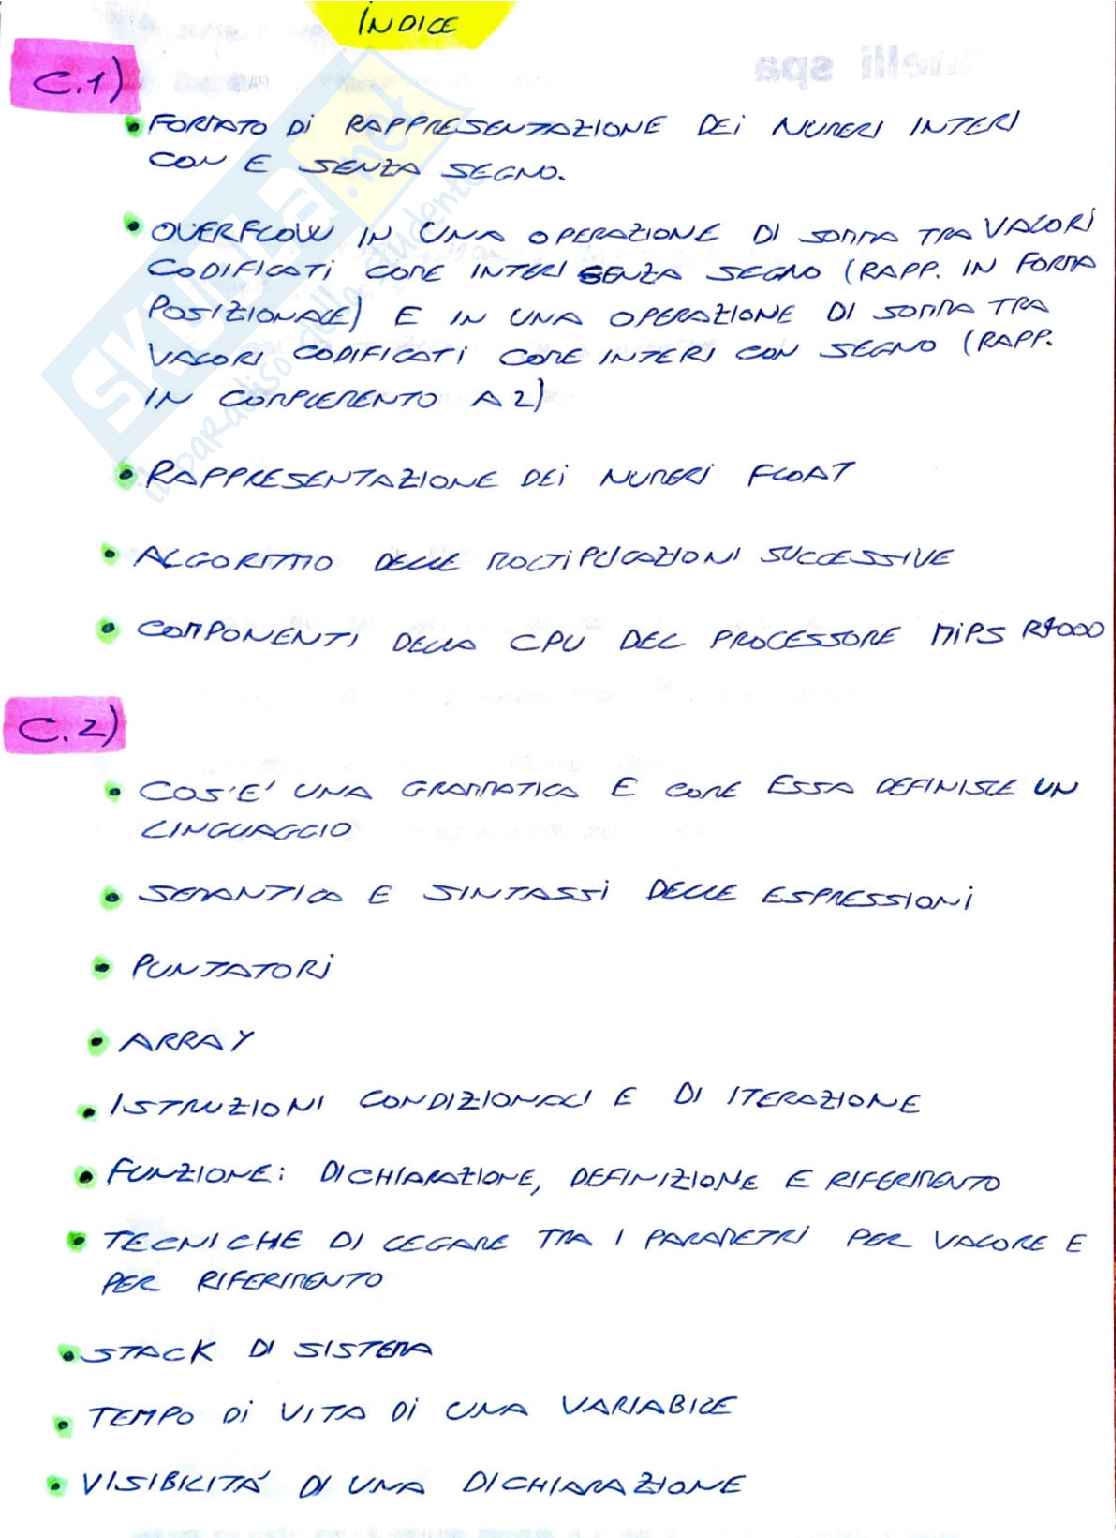 INDICE
C.1)
• FORMATO Di RAPPRESENTAZIONE DEi NUMERI INTERI
CON E SENZA SEGNO.
• OVERFLOW IN UNA OPERAZIONE DI SOMMA TRA VALORI
CODIFICATI COME INTERI SENZA SEGNO (RAPP. IN FORMA
POSIZIONALE) E IN UNA OPERAZIONE DI SOMMA TRA
VALORI CODIFICATI COME INTERI CON SEGNO (RAPP.
IN COMPLEMENTO A 2)
• RAPPRESENTAZIONE DEi NUMERI FLOAT
• ALGORITMO DELLE MOLTIPLICAZIONI SUCCESSIVE
• COMPONENTI DELLA CPU DEL PROCESSORE MiPS R4000
C.2)
• COS'E' UNA GRAMMATICA E COME ESSA DEFINISCE UN
LINGUAGGIO
• SEMANTICA E SINTASSI DELLE ESPRESSIONI
• PUNTATORI
• ARRAY
• ISTRUZIONI CONDIZIONALI E DI ITERAZIONE
• FUNZIONE: DICHIARAZIONE, DEFINIZIONE E RIFERIMENTO
• TECNICHE DI LEGARE TRA I PARAMETRI PER VALORE E
PER RIFERIMENTO
• STACK DI SISTEMA
• TEMPO Di VITA Di UNA VARIABILE
• VISIBILITÀ DI UNA DICHIARAZIONE
SKUOLA.net
il paradiso dello studente